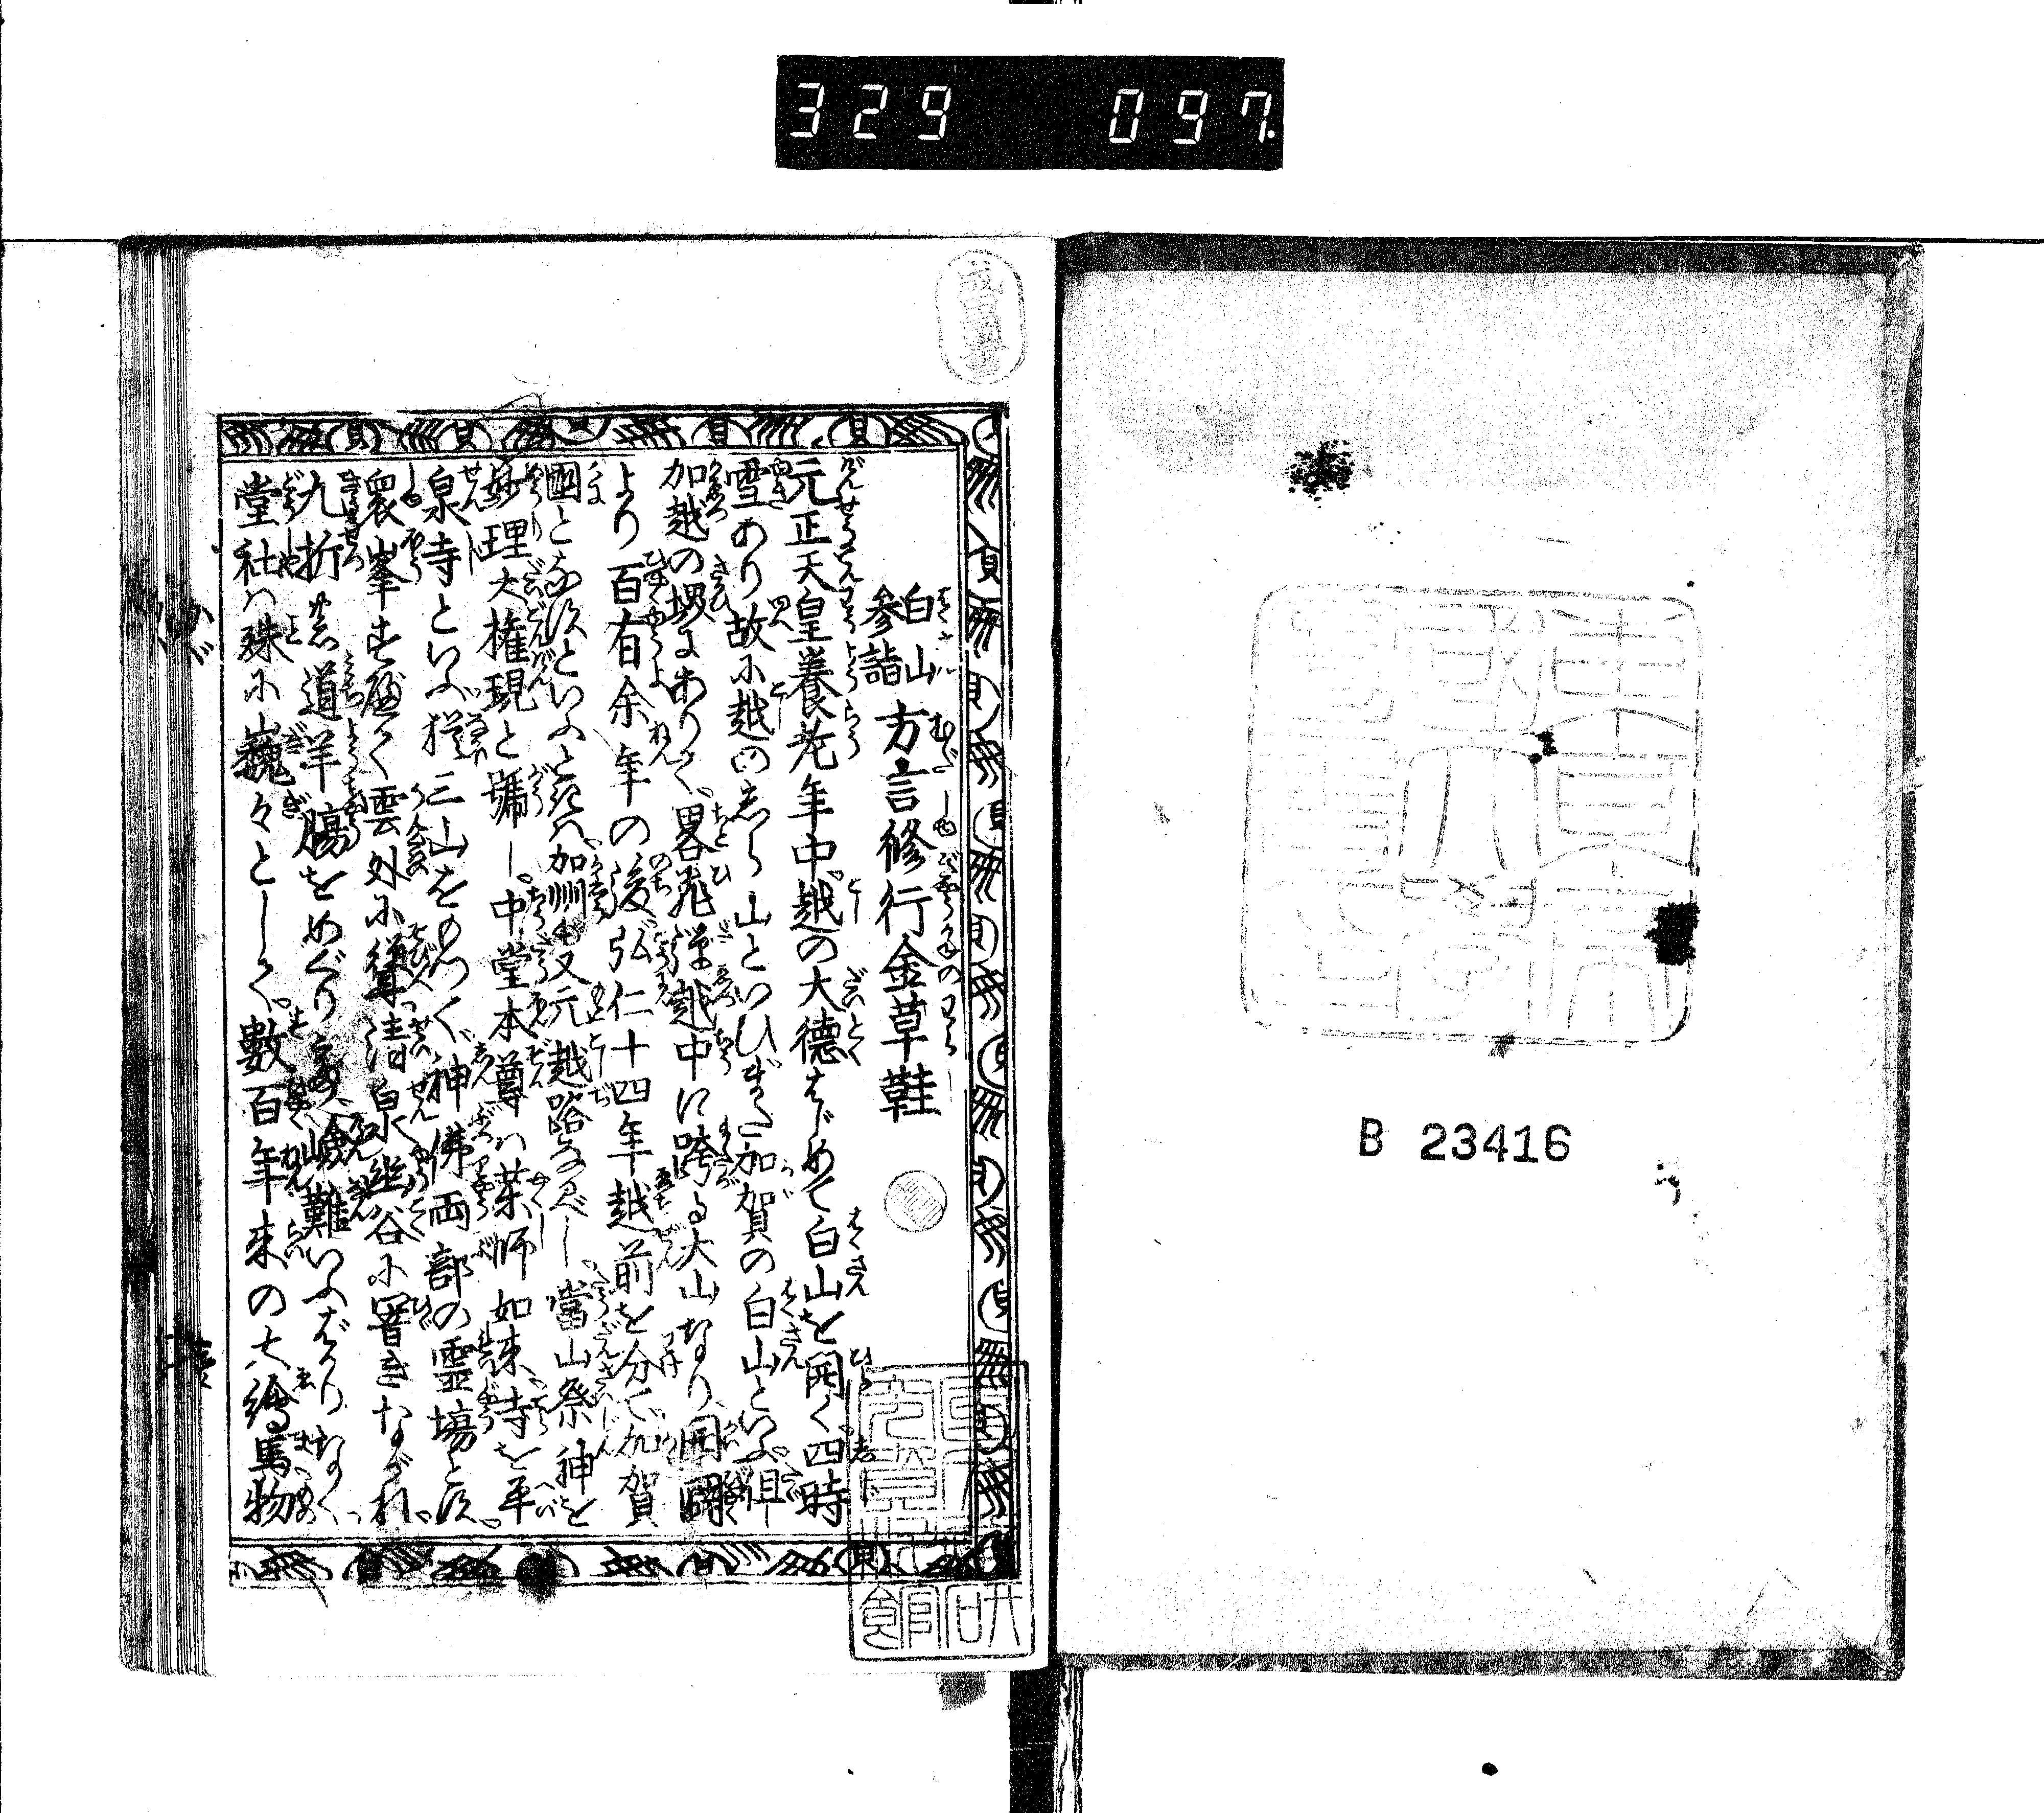 329 097
B 23416
白山
参詣
方言修行金草鞋
元正天皇養老年中越の大徳はじめて白山を開く四時
雪あり故に越のしら山といひ また加賀の白山といふ 但
加越の堺にありて 畧飛弾越中に跨る大山なり 開闢
より百有余年の後 弘仁十四年越前を分て加賀
國となすといふときは 加洲も又元越路なるべし 當山祭神を
妙理大権現と号し 中堂本尊は薬師如来 寺を平
泉寺といふ 三山をのつく 神佛両部の霊場とす
衆峯すべて雲外に聳 清泉幽谷に響きながれ
九折 道羊腸をめぐり 嶮難いふばかりなく
堂社は殊に巍々として 數百年来の大繪馬物